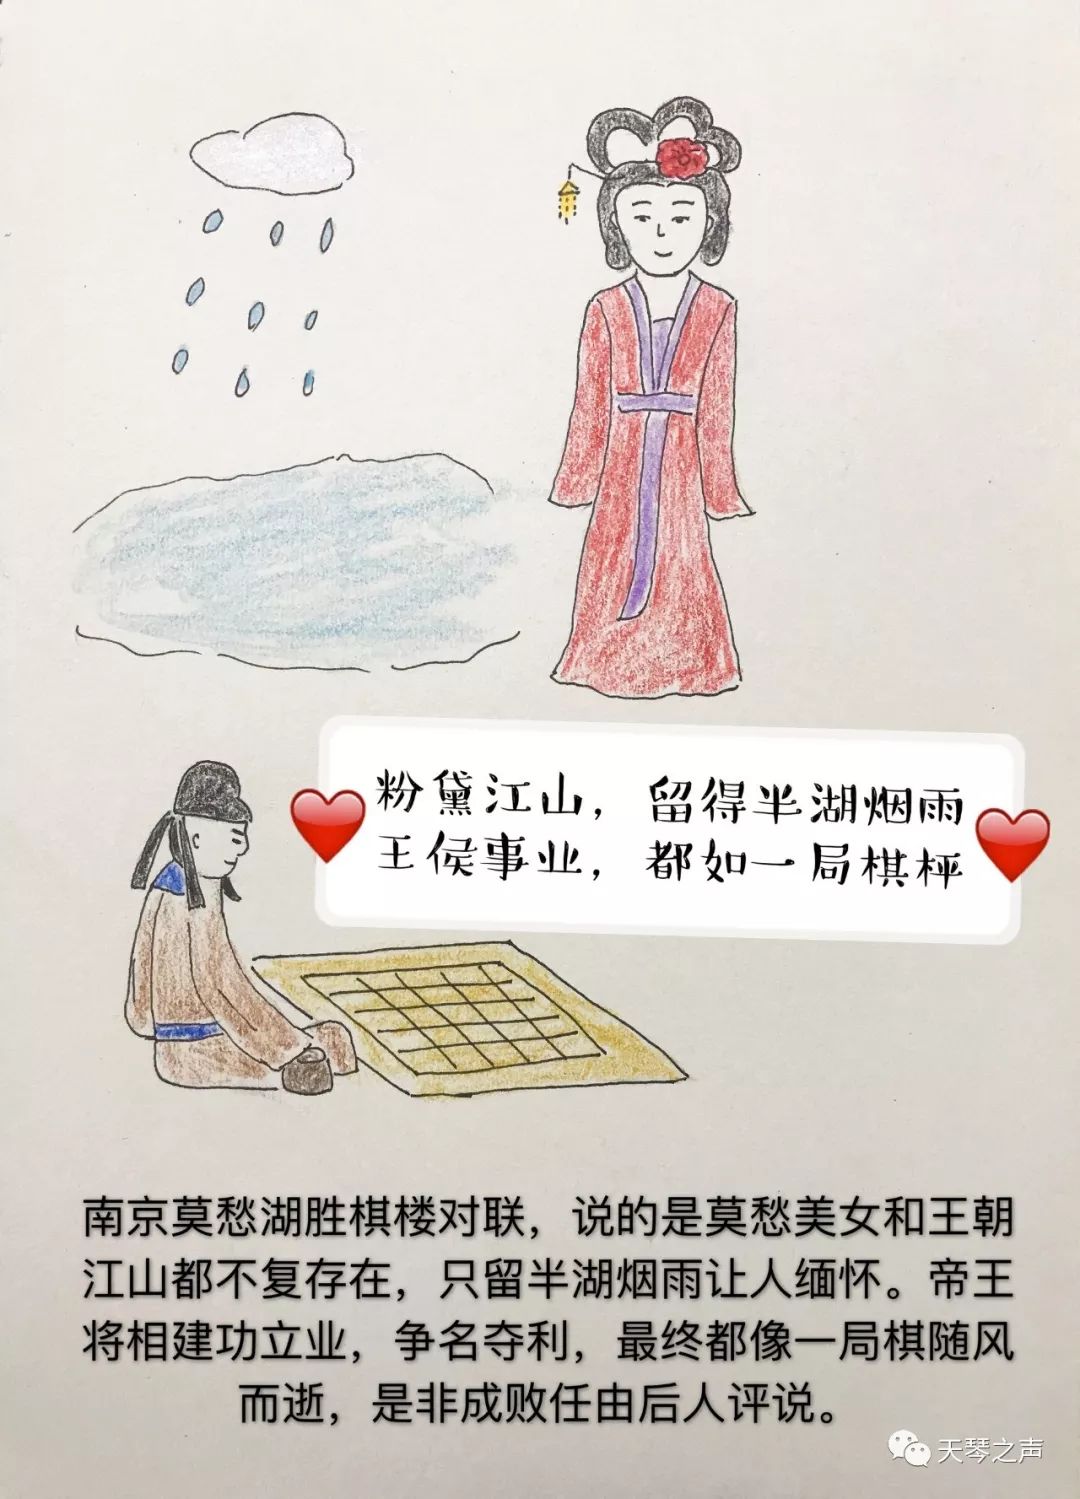 粉黛江山，留得半湖烟雨
王侯事业，都如一局棋枰
南京莫愁湖胜棋楼对联，说的是莫愁美女和王朝
江山都不复存在，只留半湖烟雨让人缅怀。帝王
将相建功立业，争名夺利，最终都像一局棋随风
而逝，是非成败任由后人评说。
天琴之声